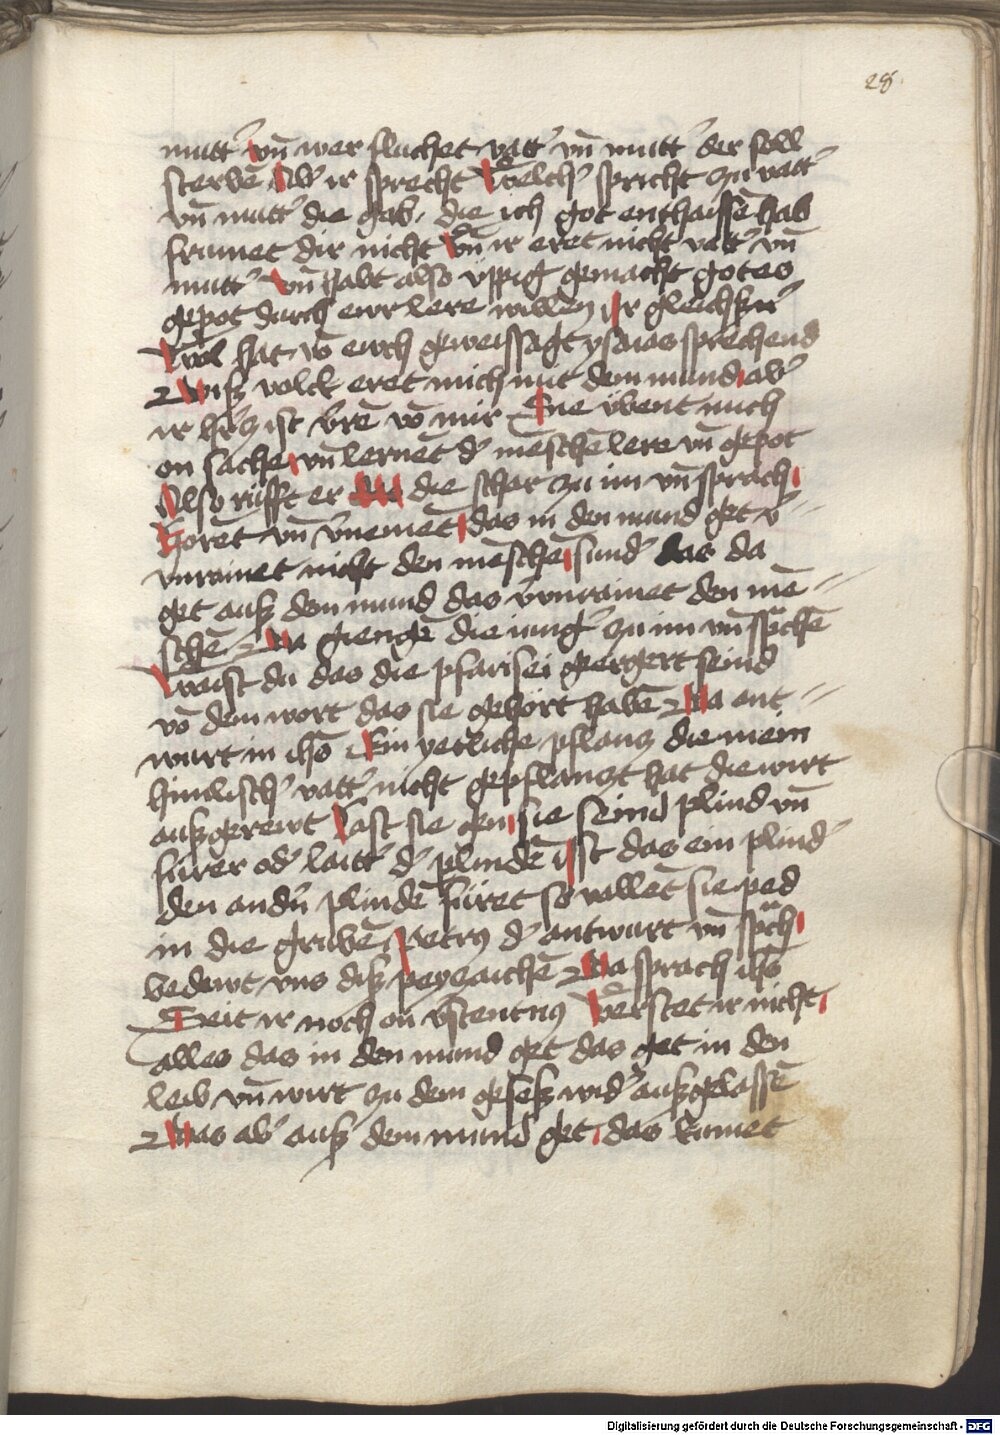 28
mutt' vn̄ wer fluchet vatt' vn̄ mutt' der soll
sterbē Ab' ir sprecht Welch' spricht zu vatt'
vn̄ mutt' die gab / die ich got enthaissē hab
frumet dir nicht Vn̄ ir eret nicht vatt' vn̄
mutt' Vn̄ habt also üppig gemacht gotes
gepot durch ewr lere willen Ir gleichsn̄'
Wol hat vō ewch geweissagt ysaias sprechend
Ditz volck eret mich mit dem mund ab'
ir h'cz ist v'rē vō mir Sie übent mich
on sache vn̄ lernēt d' mēschē lere vn̄ gepot
Also rüfft er die schar zu im vn̄ sprach
Hörēt vn̄ v'nemēt das in den mund get v'=
unrainet nicht den mēschē sund' das da
get ausz dem mund das v'unrainet den mē=
schē Da giengē die iung' zu im vn̄ sp̄chē
Waist du das die pharisei geergert seind
vō dem wort das sie gehört habē Da ant=
wurt in ih̄s Ein yetliche pflancz die mein
himlisch' vatt' nicht gepflanczt hat die wirt
auszgerewt Last sie gen sie seind plind vn̄
fürer od' laitt' d' plindē Ist das ein plind'
den andn̄ plindē füret so vallēt sie ped
in die grubē Petrus d' antwurt vn̄ sp̄ch
Bedewt vns disz peyzaichē Da sprach ih̄s
Seit ir noch on v'stentnus Verstet ir nicht
alles das in den mund get das get in den
leib vn̄ wirt zu dem gesesz wid' auszgelassē
Das ab' ausz dem mund get das kumet
Digitalisierung gefördert durch die Deutsche Forschungsgemeinschaft - DFG